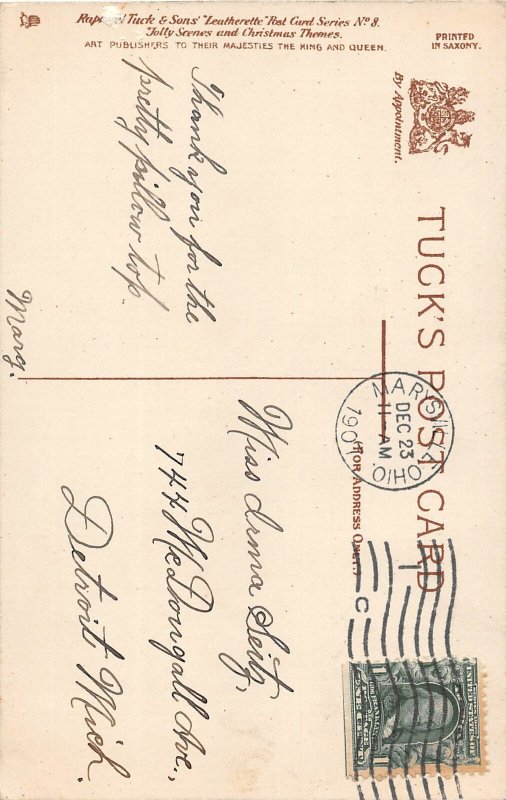 Raphael Tuck & Sons' "Leatherette" Post Card Series Nº 8.
Jolly Scenes and Christmas Themes.
ART PUBLISHERS TO THEIR MAJESTIES THE KING AND QUEEN.
PRINTED
IN SAXONY.
By Appointment.
TUCK'S POST CARD
(FOR ADDRESS ONLY.)
MARYSVILLE
DEC 23
11-AM
1907
OHIO.
C
Thank you for the
pretty pillow top.
Marg.
Miss Irma Seitz,
744 McDougall Ave.,
Detroit Mich.